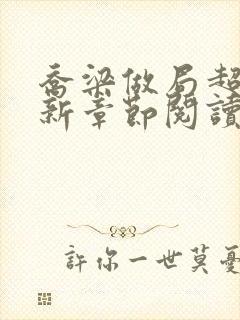 喬梁做局超
新章節閱讀
許你一世莫憂